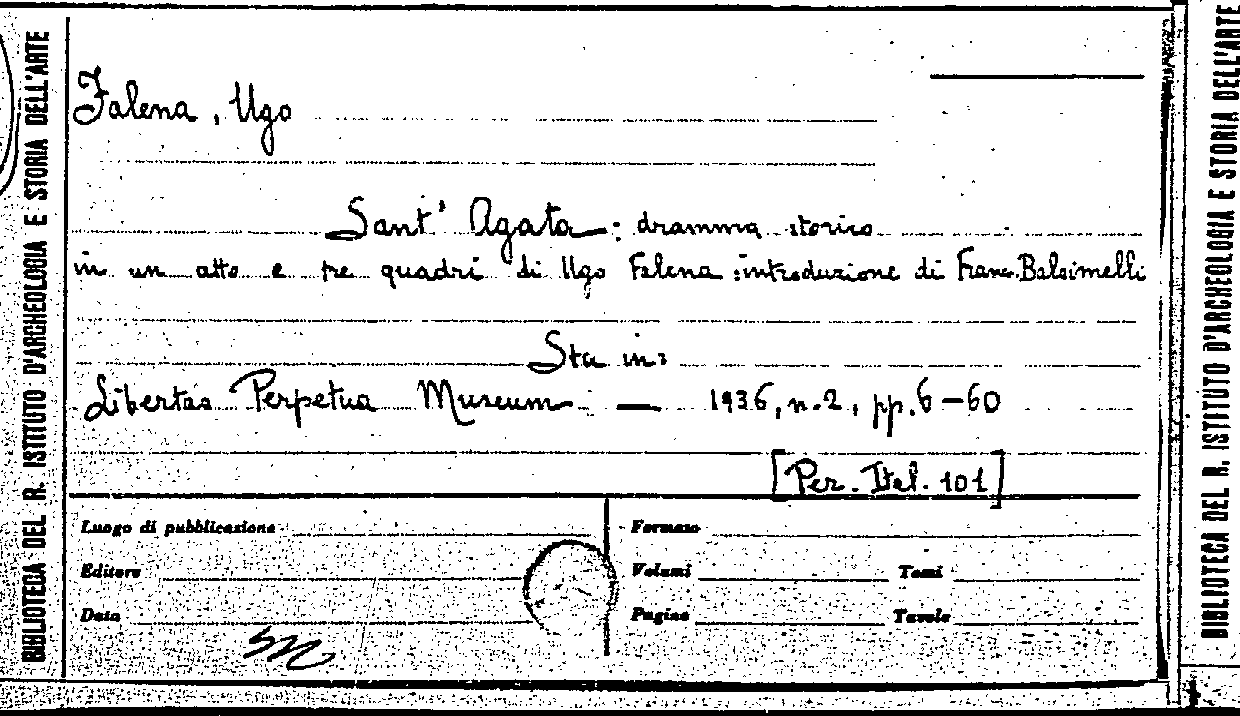 BIBLIOTECA DEL R. ISTITUTO D'ARCHEOLOGIA E STORIA DELL'ARTE
Falena, Ugo
Sant' Agata : dramma storico
in un atto e tre quadri di Ugo Falena : introduzione di Franc. Balsimelli
Sta in:
Libertas Perpetua Museum — 1936, n. 2, pp. 6-60
[Per. Ital. 101]
Luogo di pubblicazione
Formato
Editore
Volumi
Tomi
Data
Pagine
Tavole
BIBLIOTECA DEL R. ISTITUTO D'ARCHEOLOGIA E STORIA DELL'ARTE